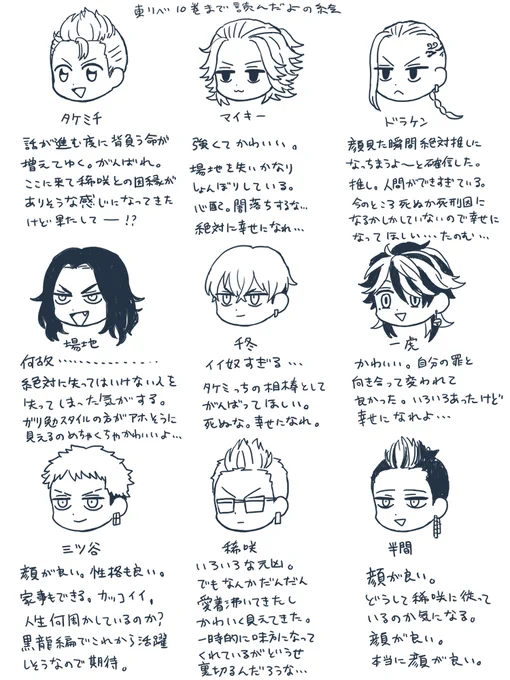 東リベ10巻まで読んだよの絵
タケミチ
話が進む度に背負う命が
増えてゆく。がんばれ。
ここに来て稀咲との因縁が
ありそうな感じになってきた
けど果たして ― !?
マイキー
強くてかわいい。
場地を失いかなり
しょんぼりしている。
心配。闇落ちするな…
絶対に幸せになれ…
ドラケン
顔見た瞬間絶対推しに
なっちまうよ〜と確信した。
推し。人間ができすぎている。
今のところ死ぬか死刑囚に
なるかしかしていないので幸せに
なってほしい…たのむ…
場地
何故……………
絶対に失ってはいけない人を
失ってしまった気がする。
ガリ勉スタイルの方がアホそうに
見えるのめちゃくちゃかわいいよ…
千冬
イイ奴すぎる…
タケミっちの相棒として
がんばってほしい。
死ぬな。幸せになれ。
一虎
かわいい。自分の罪と
向き合って変われて
良かった。いろいろあったけど
幸せになれよ…
三ツ谷
顔が良い。性格も良い。
家事もできる。カッコイイ。
人生何周かしているのか?
黒龍編でこれから活躍
しそうなので期待。
稀咲
いろいろな元凶。
でもなんかだんだん
愛着沸いてきたし
かわいく見えてきた。
一時的に味方になって
くれているがどうせ
裏切るんだろうな…
半間
顔が良い。
どうして稀咲に従って
いるのか気になる。
顔が良い。
本当に顔が良い。